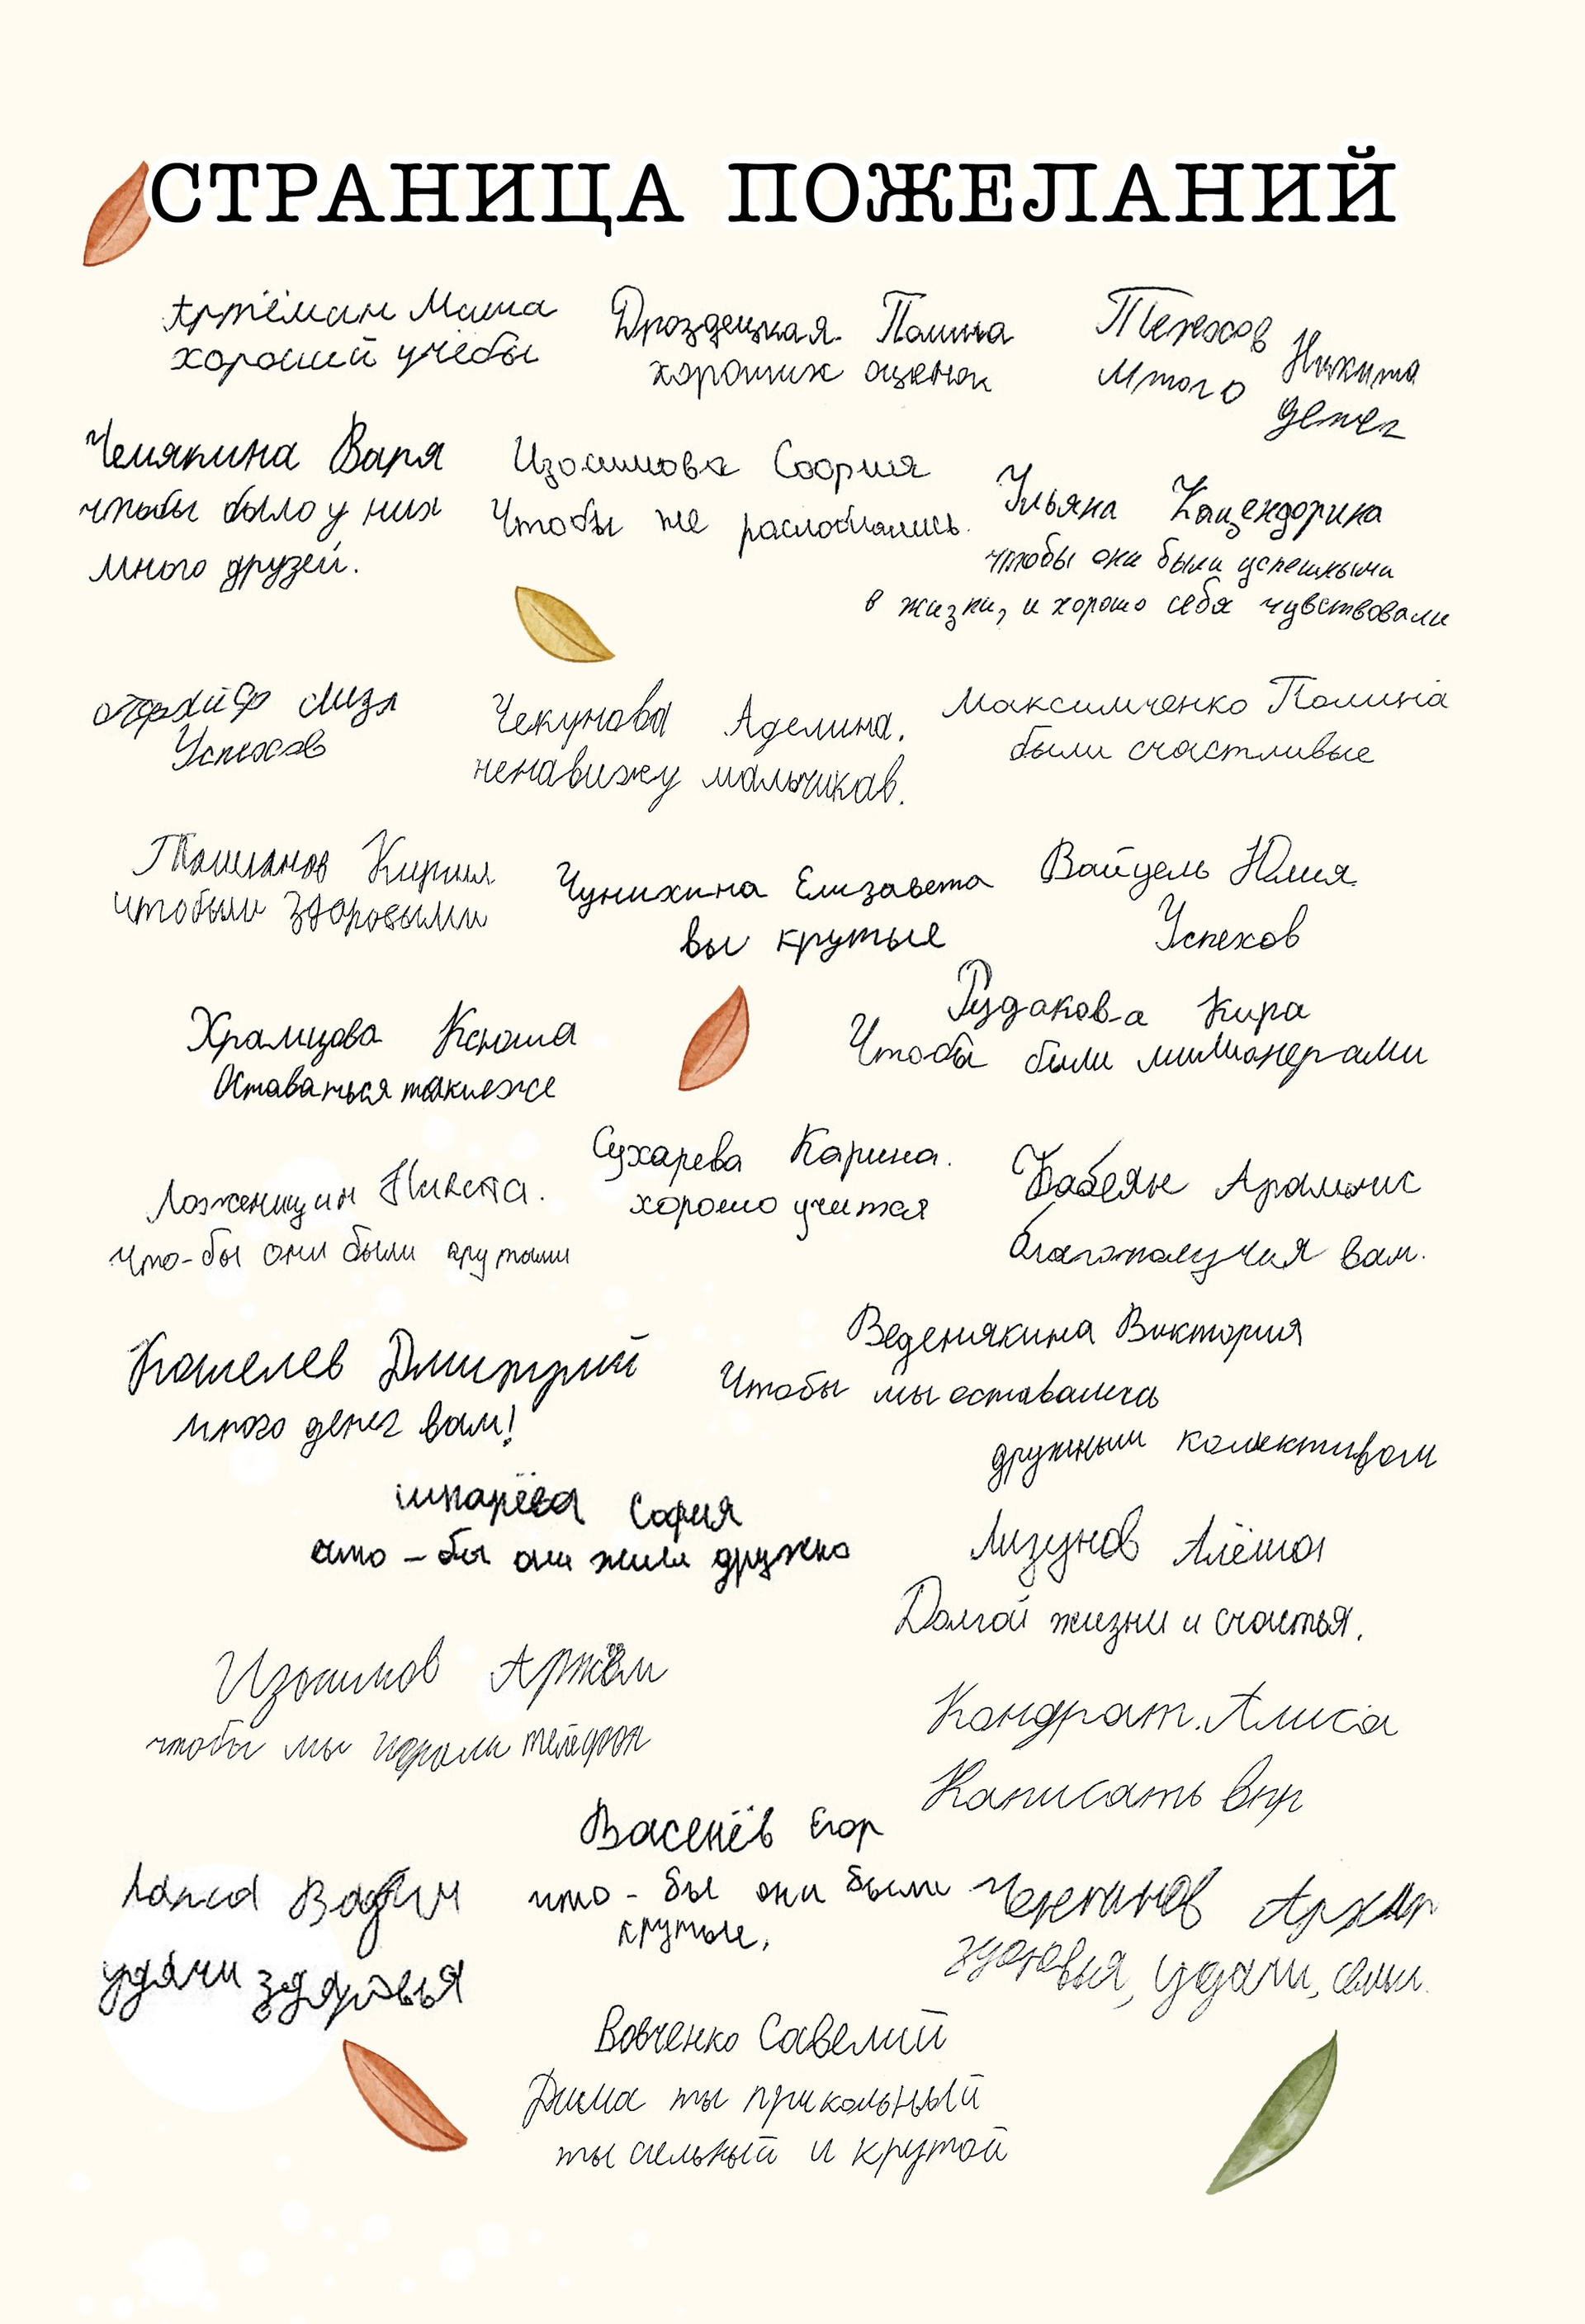 СТРАНИЦА ПОЖЕЛАНИЙ
Артёман Маша
хорошей учёбы
Дроздецкая Полина
хороших оценок
Терехов Никита
Много денег
Чемякина Варя
чтобы было у них
много друзей.
Изосимова Соофия
Чтобы не раслоблялись.
Ульяна Кацендорина
чтобы они были успешными
в жизни, и хорошо себя чувствовали
Лиза
Успехов
Чекунова Аделина.
ненавижу мальчикав.
Максимченко Полина
были счастливые
Кирилл
чтобыли здоровыми
Чунихина Елизавета
вы крутые
Вайцель Юлия.
Успехов
Храмцова Ксюша
Оставаться такиеже
Рудакова Кира
Чтобы были милионерами
Сухарева Карина.
хорошо учится
Ложеницин Никита.
что-бы они были крутыми
Бабеян Арамаис
благополучия вам.
Кошелев Дмитрий
много денег вам!
Веденякина Виктория
Чтобы мы оставались
дружным колективом
шкарёва София
што-бы они жили дружно
Лизунов Алёша
Долгой жизни и счастья.
Изосимов Артём
чтобы мы играли телефон
Кондрат. Алиса
Написать впр
Васенёв Егор
што-бы они были
крутые.
Лапса Вадим
удачи здоровья
Черепанов
здоровья, удачи, семьи.
Вовченко Савелий
Дима ты прикольный
ты сильный и крутой